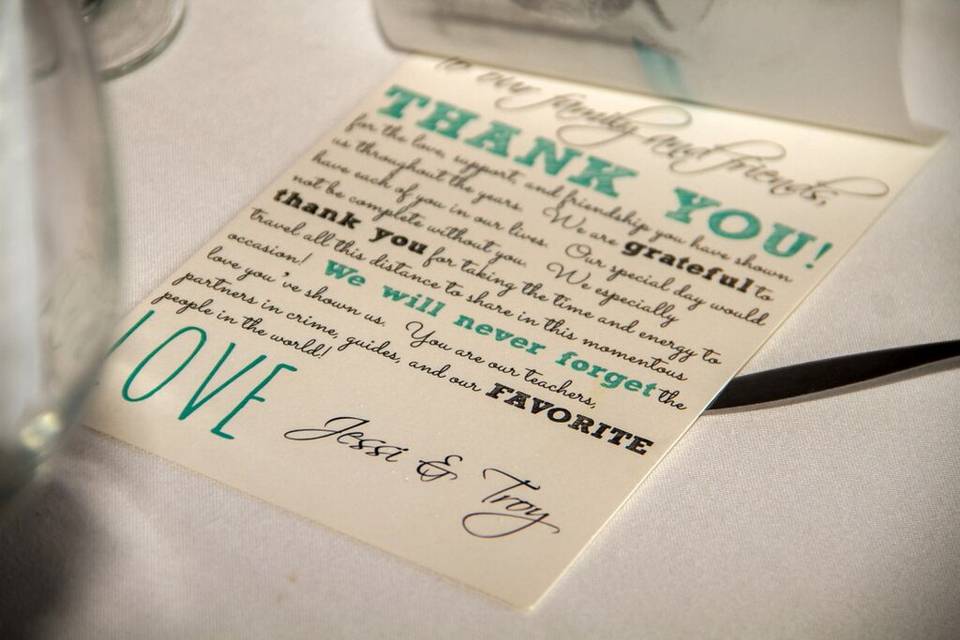 to our family and friends,
THANK YOU!
for the love, support, and friendship you have shown
us throughout the years. We are grateful to
have each of you in our lives. Our special day would
not be complete without you. We especially
thank you for taking the time and energy to
travel all this distance to share in this momentous
occasion! We will never forget the
love you've shown us. You are our teachers,
partners in crime, guides, and our FAVORITE
people in the world!
LOVE
Jessi & Troy